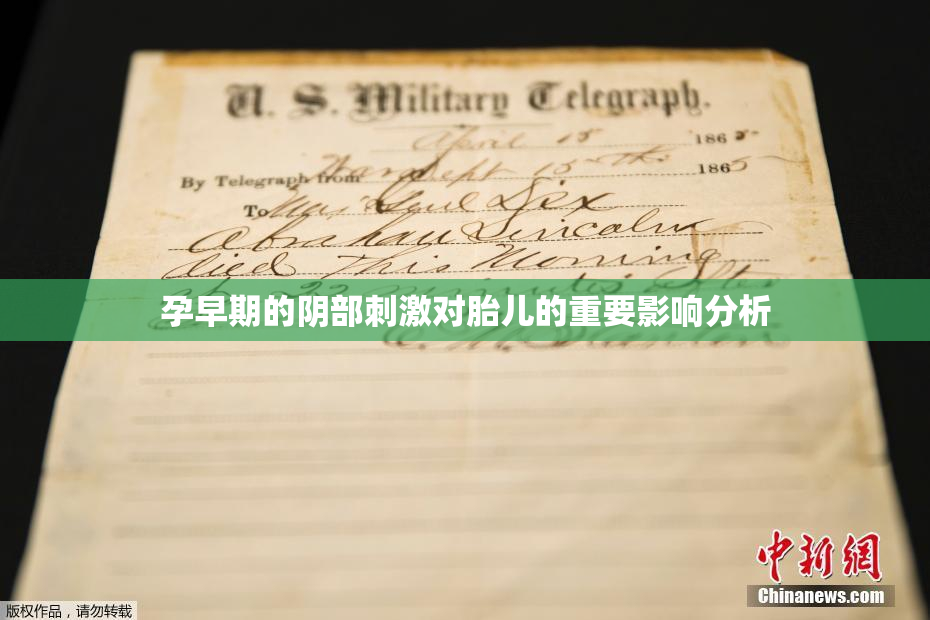 U. S. Military Telegraph.
April 15 1865
By Telegraph from War Dept 15th 1865
To Maj Genl Dix
Abraham Lincoln
died This Morning
at 22 minutes after
孕早期的阴部刺激对胎儿的重要影响分析
E. M. Stanton
中新网
Chinanews.com
版权作品，请勿转载